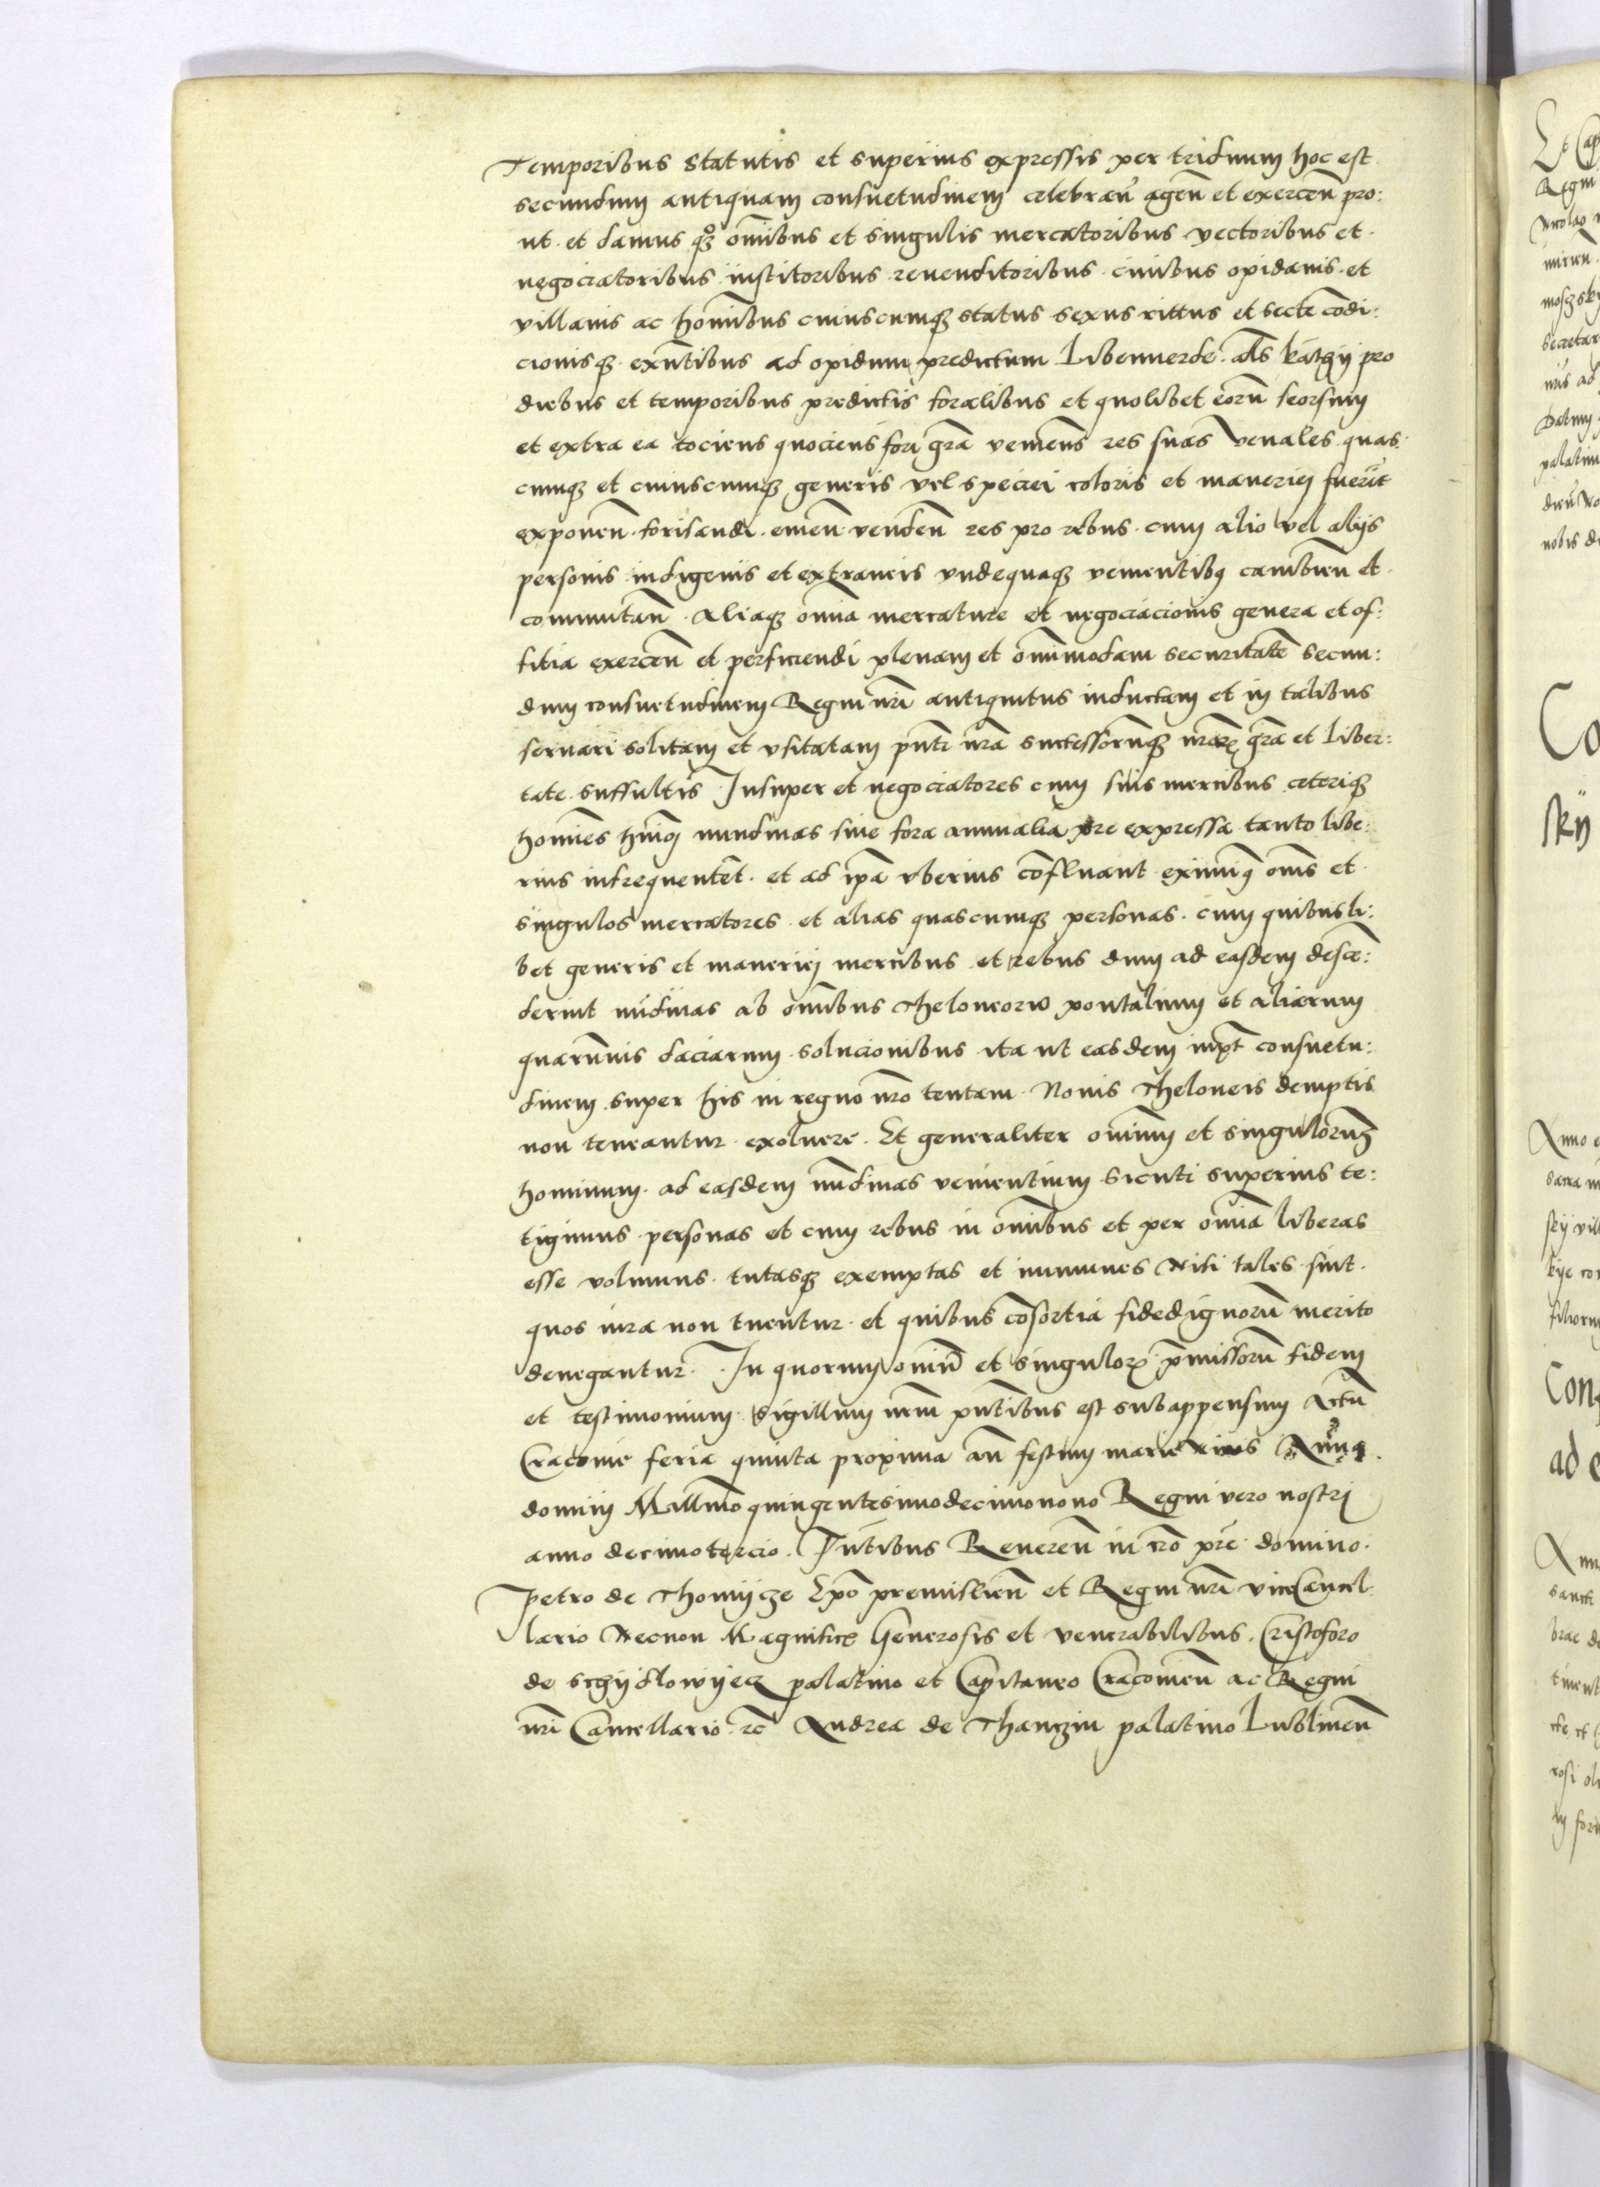 Temporibus statutis et superius expressis per triduum hoc est
secundum antiquam consuetudinem celebran̄ agen̄ et exercen̄ pro:
ut et damus qꝫ om̄ibus et singulis mercatoribus vectoribus et
negociatoribus institoribus revenditoribus civibus opidanis et
villanis ac hom̄ibus cuiuscumqꝫ status sexus rittus et secte con̄di:
cionisqꝫ exn̄tibus ad opidum predictum Libenwerde al̄s katzÿ pro
diebus et temporibus predictis foralibus et quolibet eorū seorsum
et extra ea tociens quociens fori gr̄a venien̄s res suas venales quas:
cumqꝫ et cuiuscumqꝫ generis vel speciei coloris et maneriei fuerīt
exponen̄ forisandi emen̄ venden̄ res pro rebus cum alio vel alijs
personis indigenis et extraneis undequaqꝫ venientibꝰ cambien̄ et
commutan̄ Aliaqꝫ om̄ia mercature et negociacionis genera et of:
fitia exercen̄ et perficiendi plenam et om̄imodam securitatē secun:
dum consuetudinem Regni nr̄i antiquitus inductam et in talibus
servari solitam et usitatam pn̄ti nr̄a successorumqꝫ nr̄orꝝ gr̄a et liber:
tate suffultis Insuper et negociatores cum suis mercibus ceteriqꝫ
homīes hm̄oi nundinas sive fora annualia pre expressa tanto libe:
rius infrequentēt et ad ip̄a uberius cōfluant eximimꝰ om̄s et
singulos mercatores et alias quascumqꝫ personas cum quibusli:
bet generis et maneriei mercibus et rebus dum ad easdem descē:
derint nūdinas ab om̄ibus theloneorum pontalium et aliarum
quarumvis daciarum solucionibus ita ut easdem iuxta consuetu:
dinem super his in regno nr̄o tentam Novis theloneis demptis
non teneantur exolvere Et generaliter omnium et singulorum
hominum ad easdem nūdinas venientium sicuti superius te:
tigimus personas et cum rebus in om̄ibus et per om̄ia liberas
esse volumus tutasqꝫ exemptas et immunes Nisi tales sint
quos iura non tuentur et quibus cōsortia fidedignorū merito
denegantur In quorum omniū et singulorꝝ p̄missorū fidem
et testimonium sigillum nr̄m pn̄tibus est subappensum Actū
Cracovie feria quinta proxima an̄ festum marie Anno
domini Millimo quingentesimodecimonono Regni vero nostri
anno decimotercio Pn̄tibus Reveren̄ in cr̄o pr̄e domino
Petro de Thomÿcze Epō premislien̄ et Regni nr̄i viceCancel
lario Necnon Magnificis Generosis et venerabilibus Cristoforo
de Schÿdlowÿecz palatino et Capitaneo Cracovien̄ ac Regni
nr̄i Cancellario ꝛc Andrea de Thanczin palatino Lublinen̄